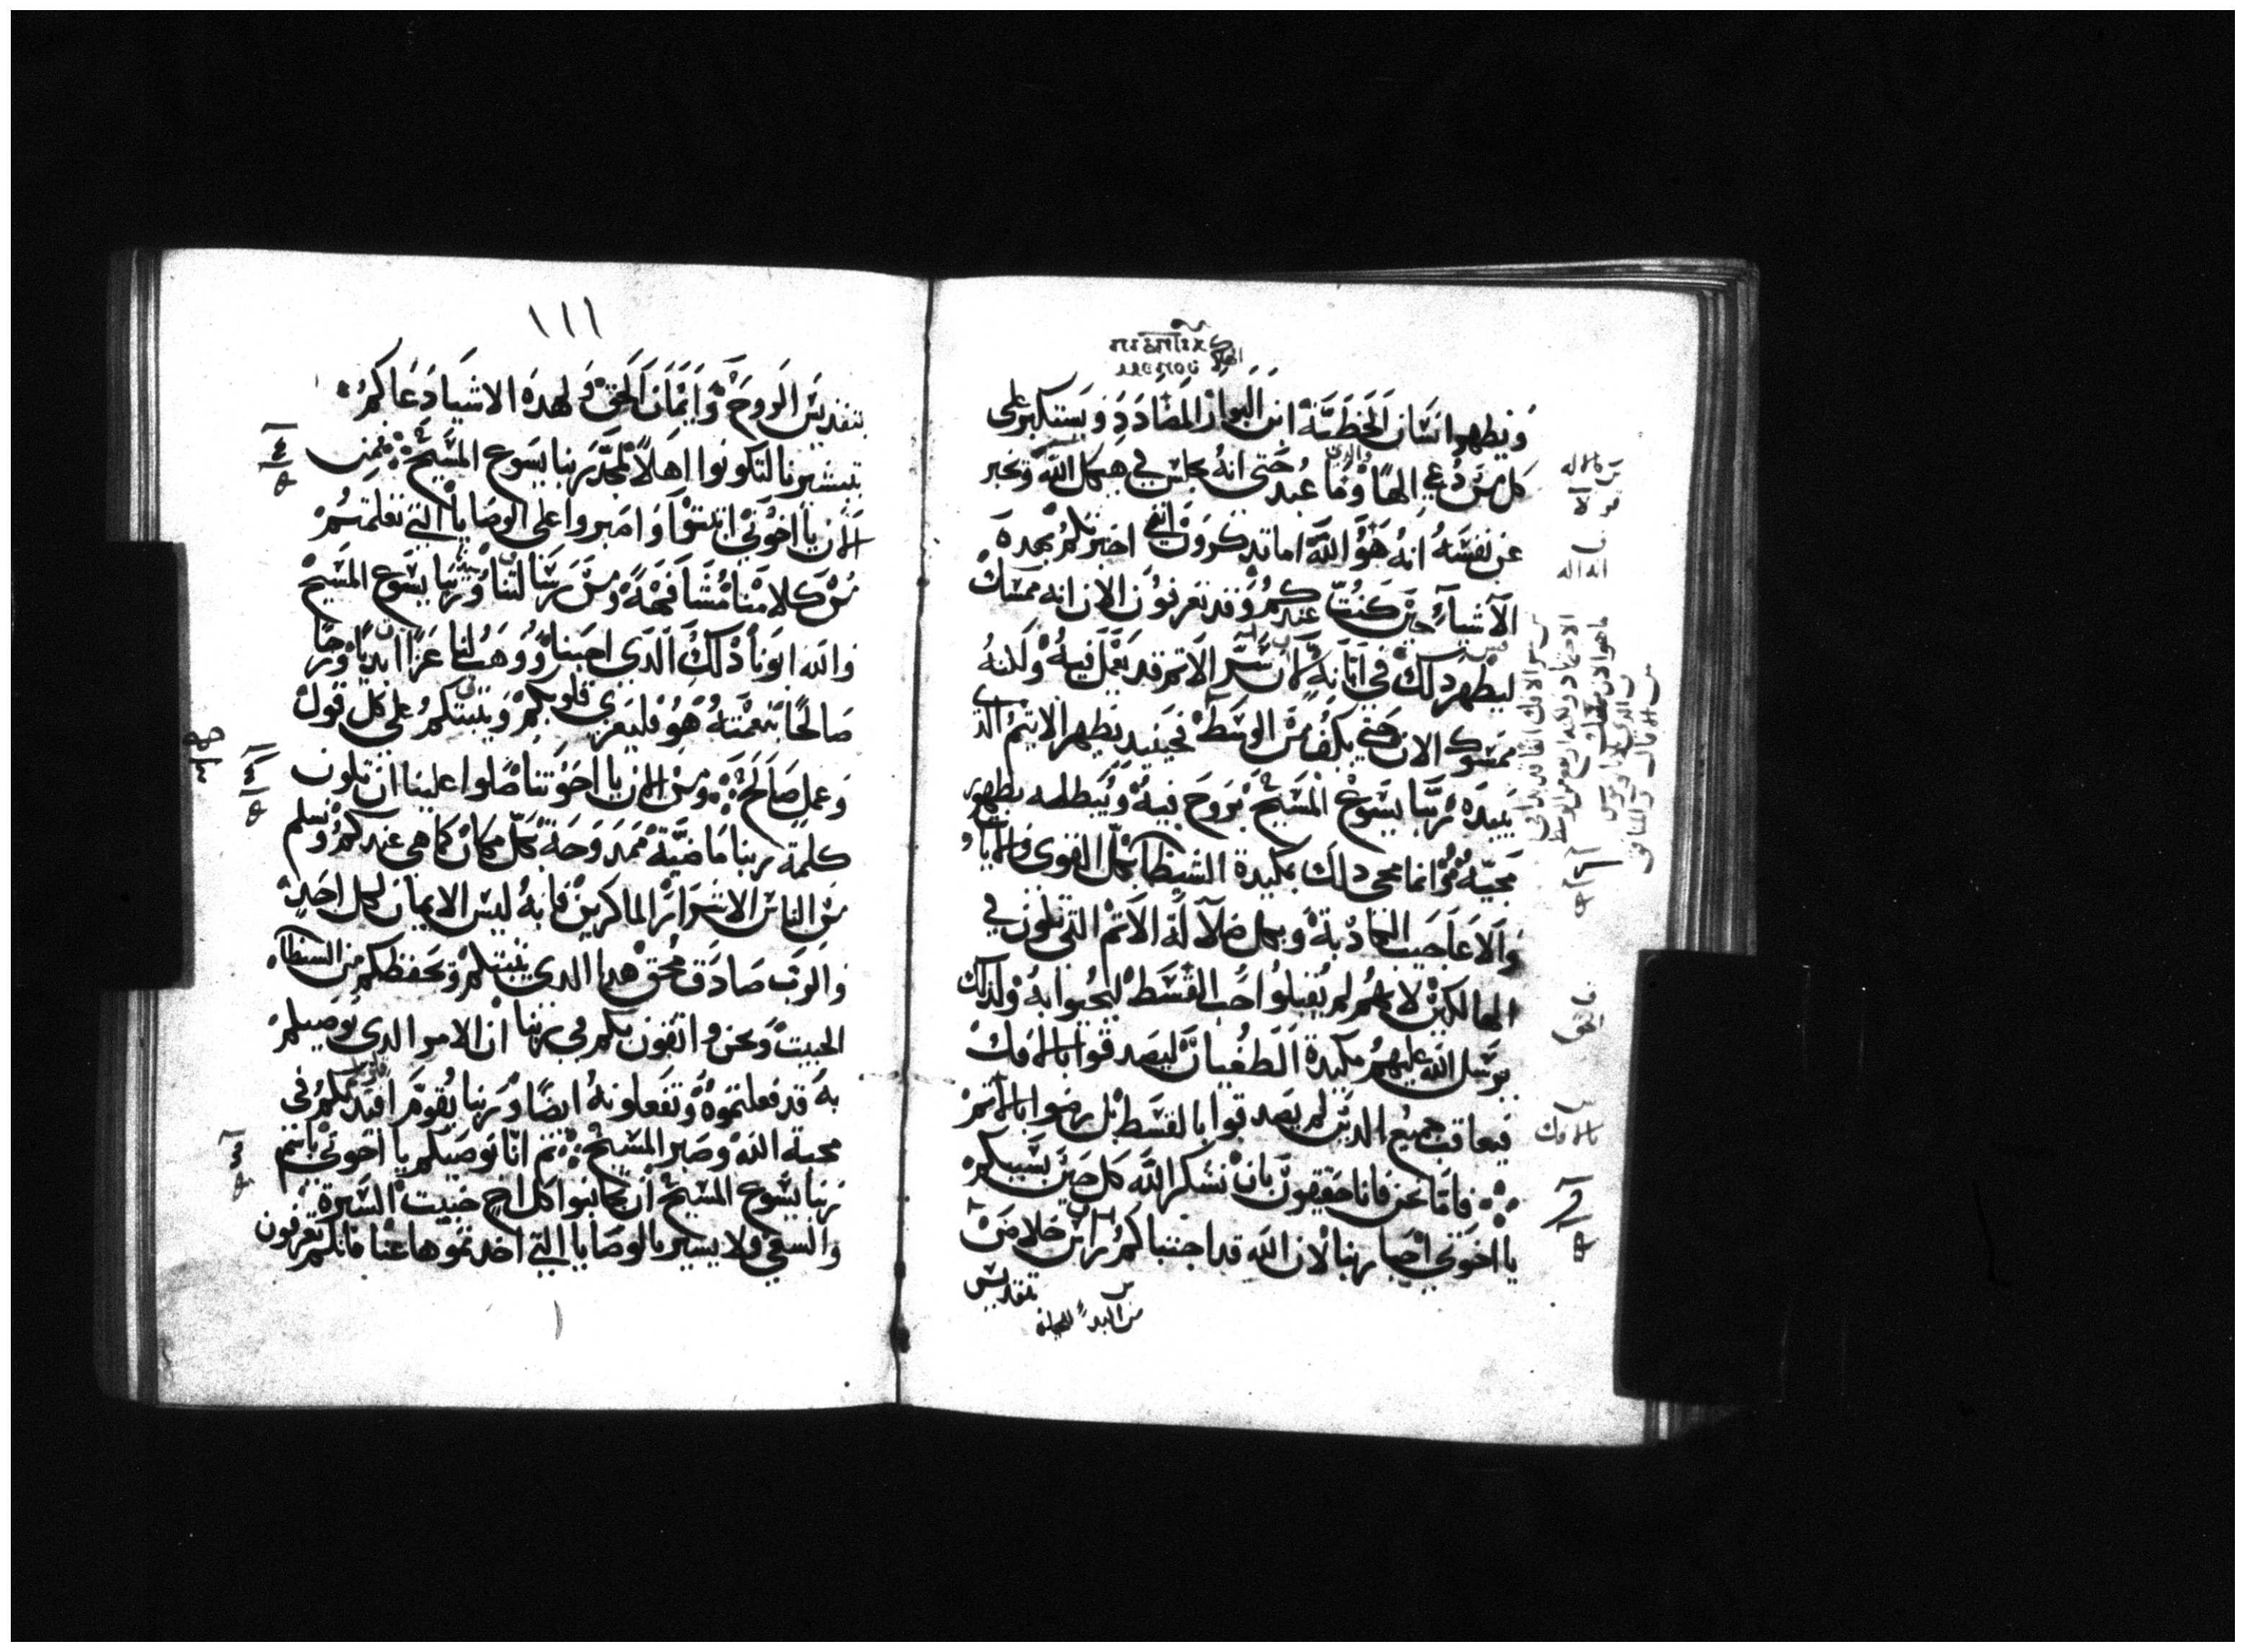 ويظهر انسان الخطية ابن البوار المضادد ويستكبر على
كل من دعي الها وما عبد حتى انه يجلس في هيكل الله ويخبر
عن نفسه انه هو الله اما تدكرون اني اخبرتكم بهده
الاشياء حين كنت عندكم وقد تعرفون الان انه ممسك
ليظهر دلك في ابانه لان سر الاتم قد يعمل فيه ولكنه
ممسوك الان حتى يكف من الوسط فحينيد يظهر الاتيم الدي
يبيده ربنا يسوع المسيح بروح فيه ويبطله بظهور
مجيه وانما مجي دلك بمكيدة الشيطان بكل القوى والايات
والاعاجيب الكادبة وبكل ضلالة الاتم التي تكون في
الهالكين لانهم لم يقبلوا حب القسط ليحيوا به ولدلك
يرسل الله عليهم مكيدة الطغيان ليصدقوا بالافك
فيعاقب جميع الدين لم يصدقوا بالقسط بل رضوا بالاتم
فاما نحن فانا حقيقون بان نشكر الله كل حين بسببكم
يا اخوتي احبا ربنا لان الله قد اجتباكم راس خلاص
بتقديس
من البدء
بالافك
١١١
بتقديس الروح وايمان الحق ولهده الاشيا دعاكم
بتبشيرنا لتكونوا اهلا لمجد ربنا يسوع المسيح فمن
الان يا اخوتي اتبتوا واصبروا على الوصايا التي تعلمتم
من كلامنا مشافهة ومن رسالتنا وربنا يسوع المسيح
والله ابونا دلك الدي احبنا ووهب لنا عزا ابديا ورجا
صالحا بنعمته هو فليعزي قلوبكم ويتبتكم على كل قول
وعمل صالح ومن الان يا اخوتنا صلوا علينا ان تكون
كلمة ربنا ماضية ممدوحة بكل مكان كما هي عندكم ونسلم
من الناس الاشرار الماكرين فانه ليس الايمان لكل احد
والرب صادق محق هدا الدي يتبتكم ويحفظكم من الشيطان
الخبيت ونحن واتقون بكم في ربنا ان الامر الدي نوصيكم
به قد فعلتموه وتفعلونه ايضا وربنا يقوم افيدتكم في
محبة الله وصبر المسيح تم انا نوصيكم يا اخوتي باسم
ربنا يسوع المسيح ان تجانبوا كل اخ خبيت السيرة
والسعي ولا يسير بالوصايا التي اخدتموها عنا فانكم تعرفون